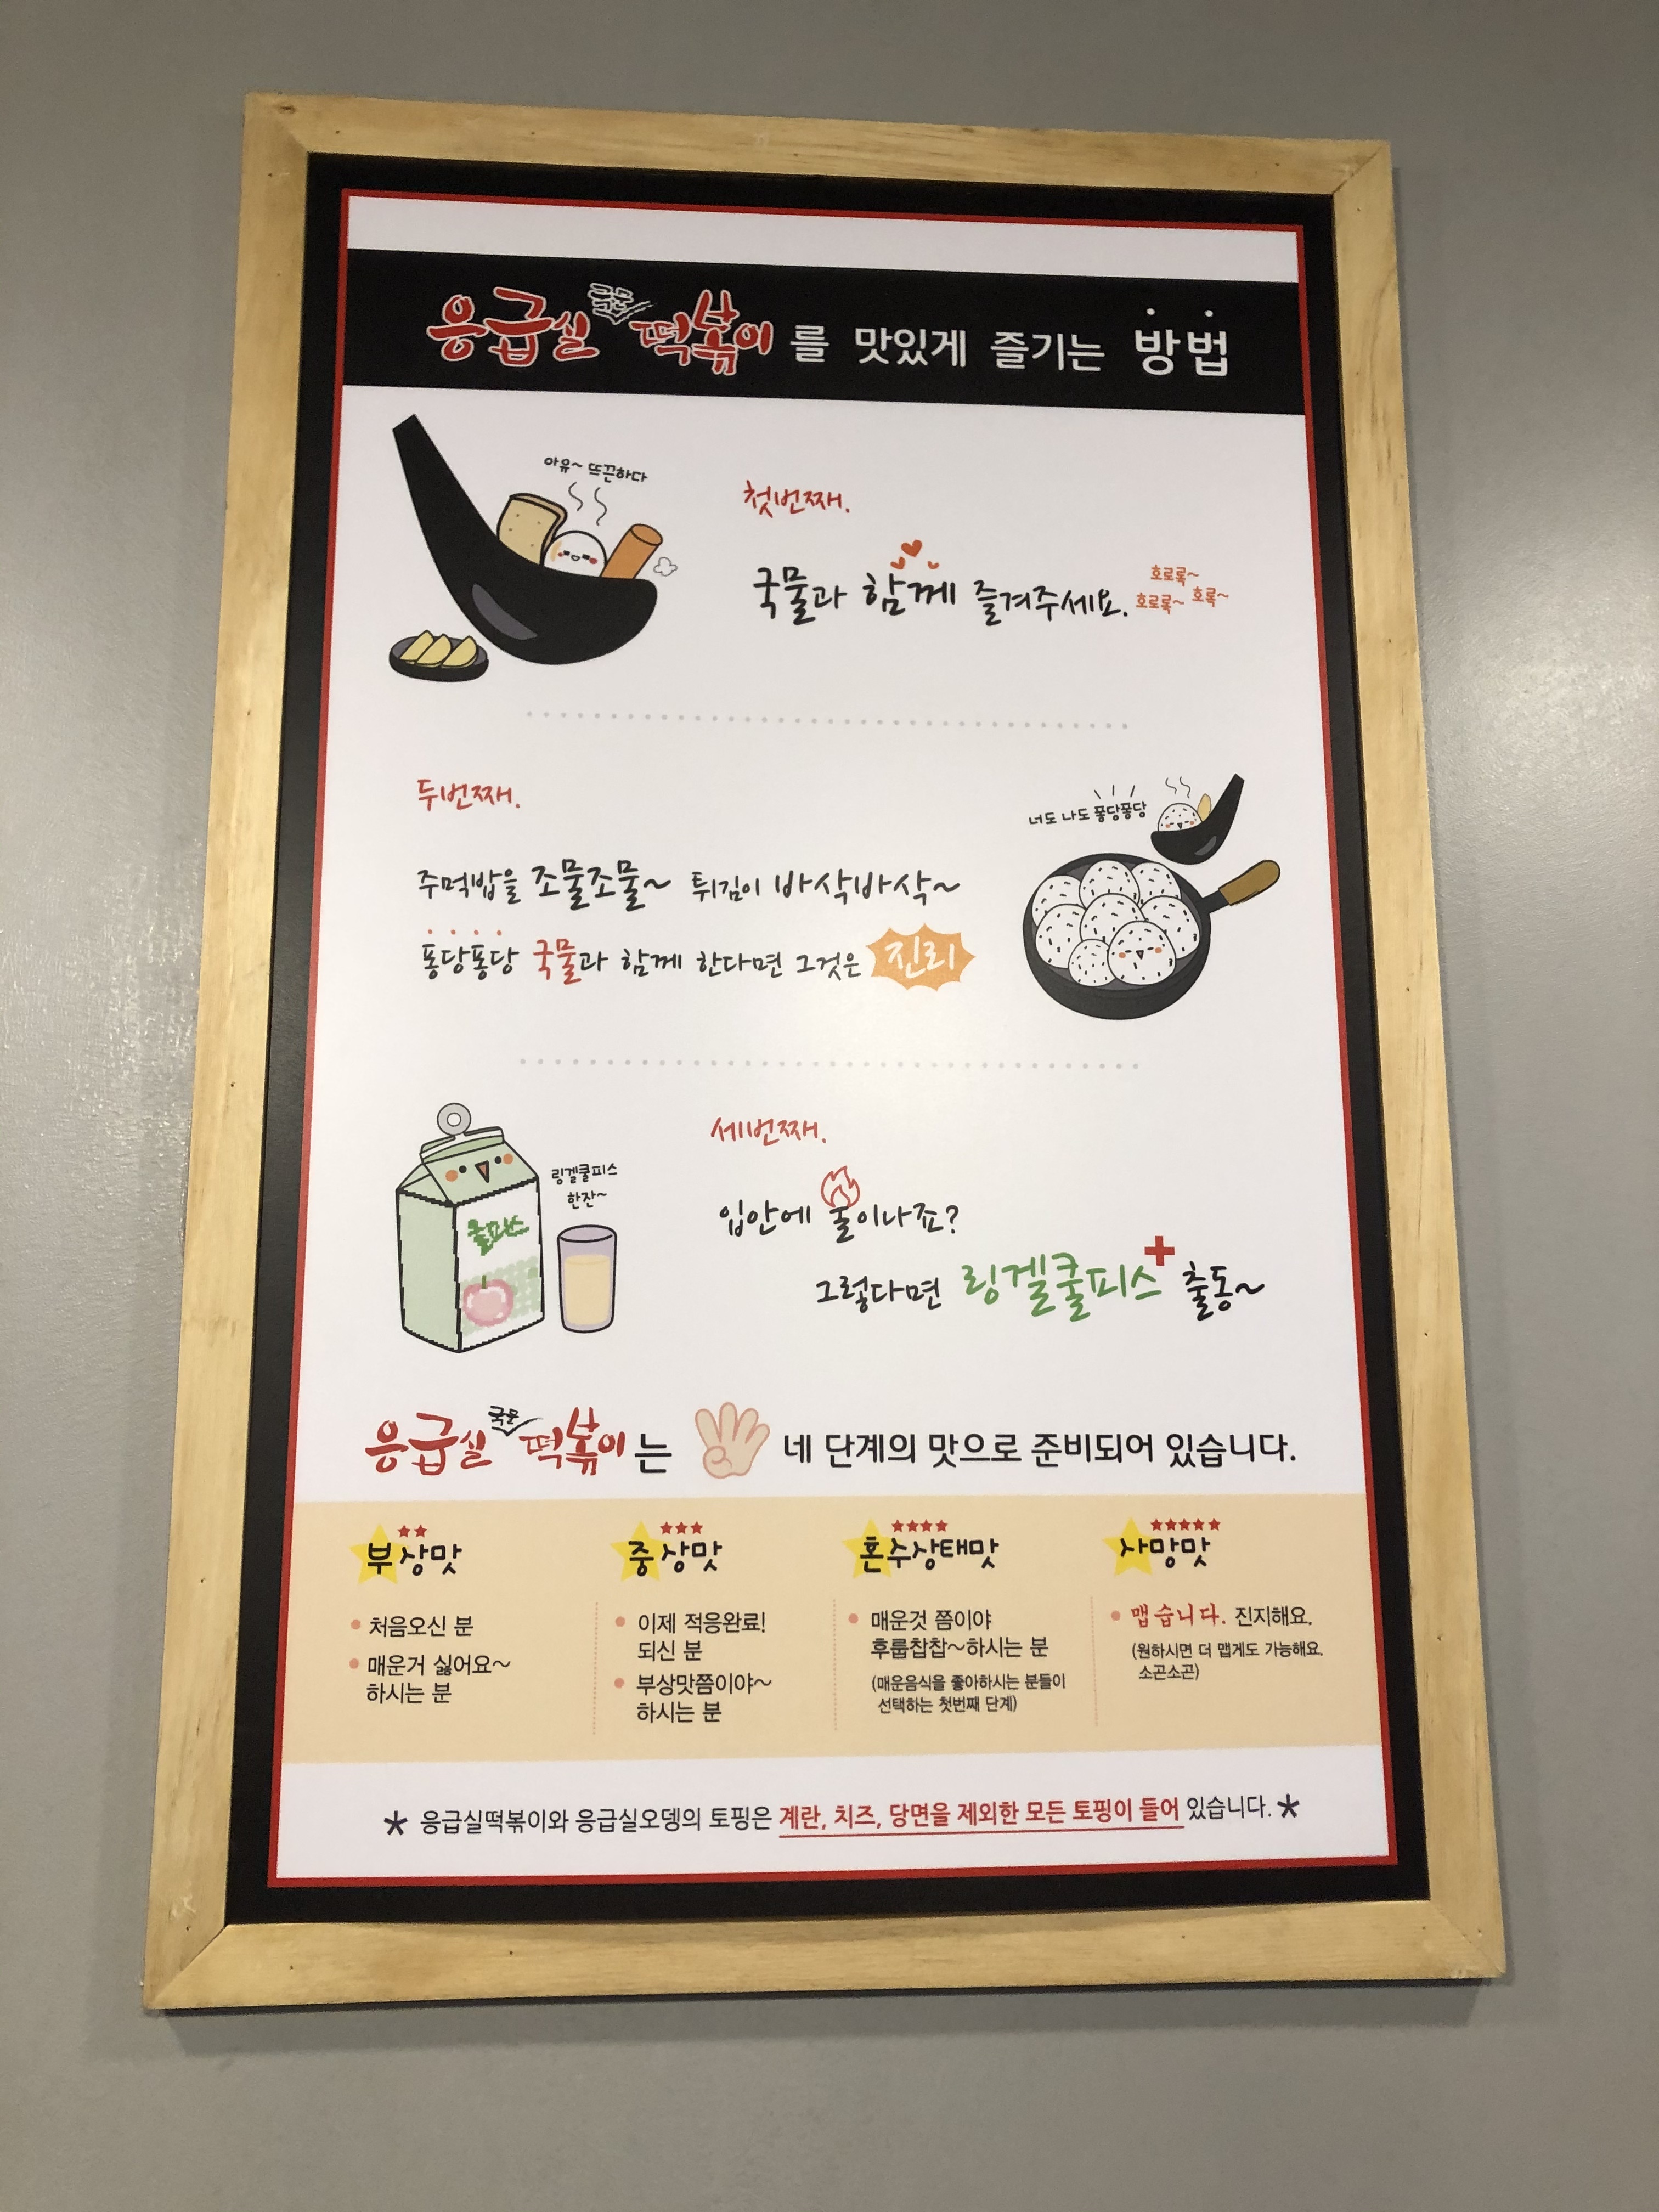 응급실 국물 떡볶이 를 맛있게 즐기는 방법
아유~ 뜨끈하다
첫번째.
국물과 함께 즐겨주세요.
호로록~
호로록~ 호록~
두번째.
너도 나도 퐁당퐁당
주먹밥을 조물조물~ 튀김이 바삭바삭~
퐁당퐁당 국물과 함께 한다면 그것은 진리
세번째.
링겔쿨피스
한잔~
쿨피스
입안에 불이나죠?
그렇다면 링겔쿨피스 출동~
응급실 국물 떡볶이 는 네 단계의 맛으로 준비되어 있습니다.
부상맛
처음오신 분
매운거 싫어요~
하시는 분
중상맛
이제 적응완료!
되신 분
부상맛쯤이야~
하시는 분
혼수상태맛
매운것 쯤이야
후룹찹찹~하시는 분
(매운음식을 좋아하시는 분들이
선택하는 첫번째 단계)
사망맛
맵습니다. 진지해요.
(원하시면 더 맵게도 가능해요.
소곤소곤)
* 응급실떡볶이와 응급실오뎅의 토핑은 계란, 치즈, 당면을 제외한 모든 토핑이 들어 있습니다. *